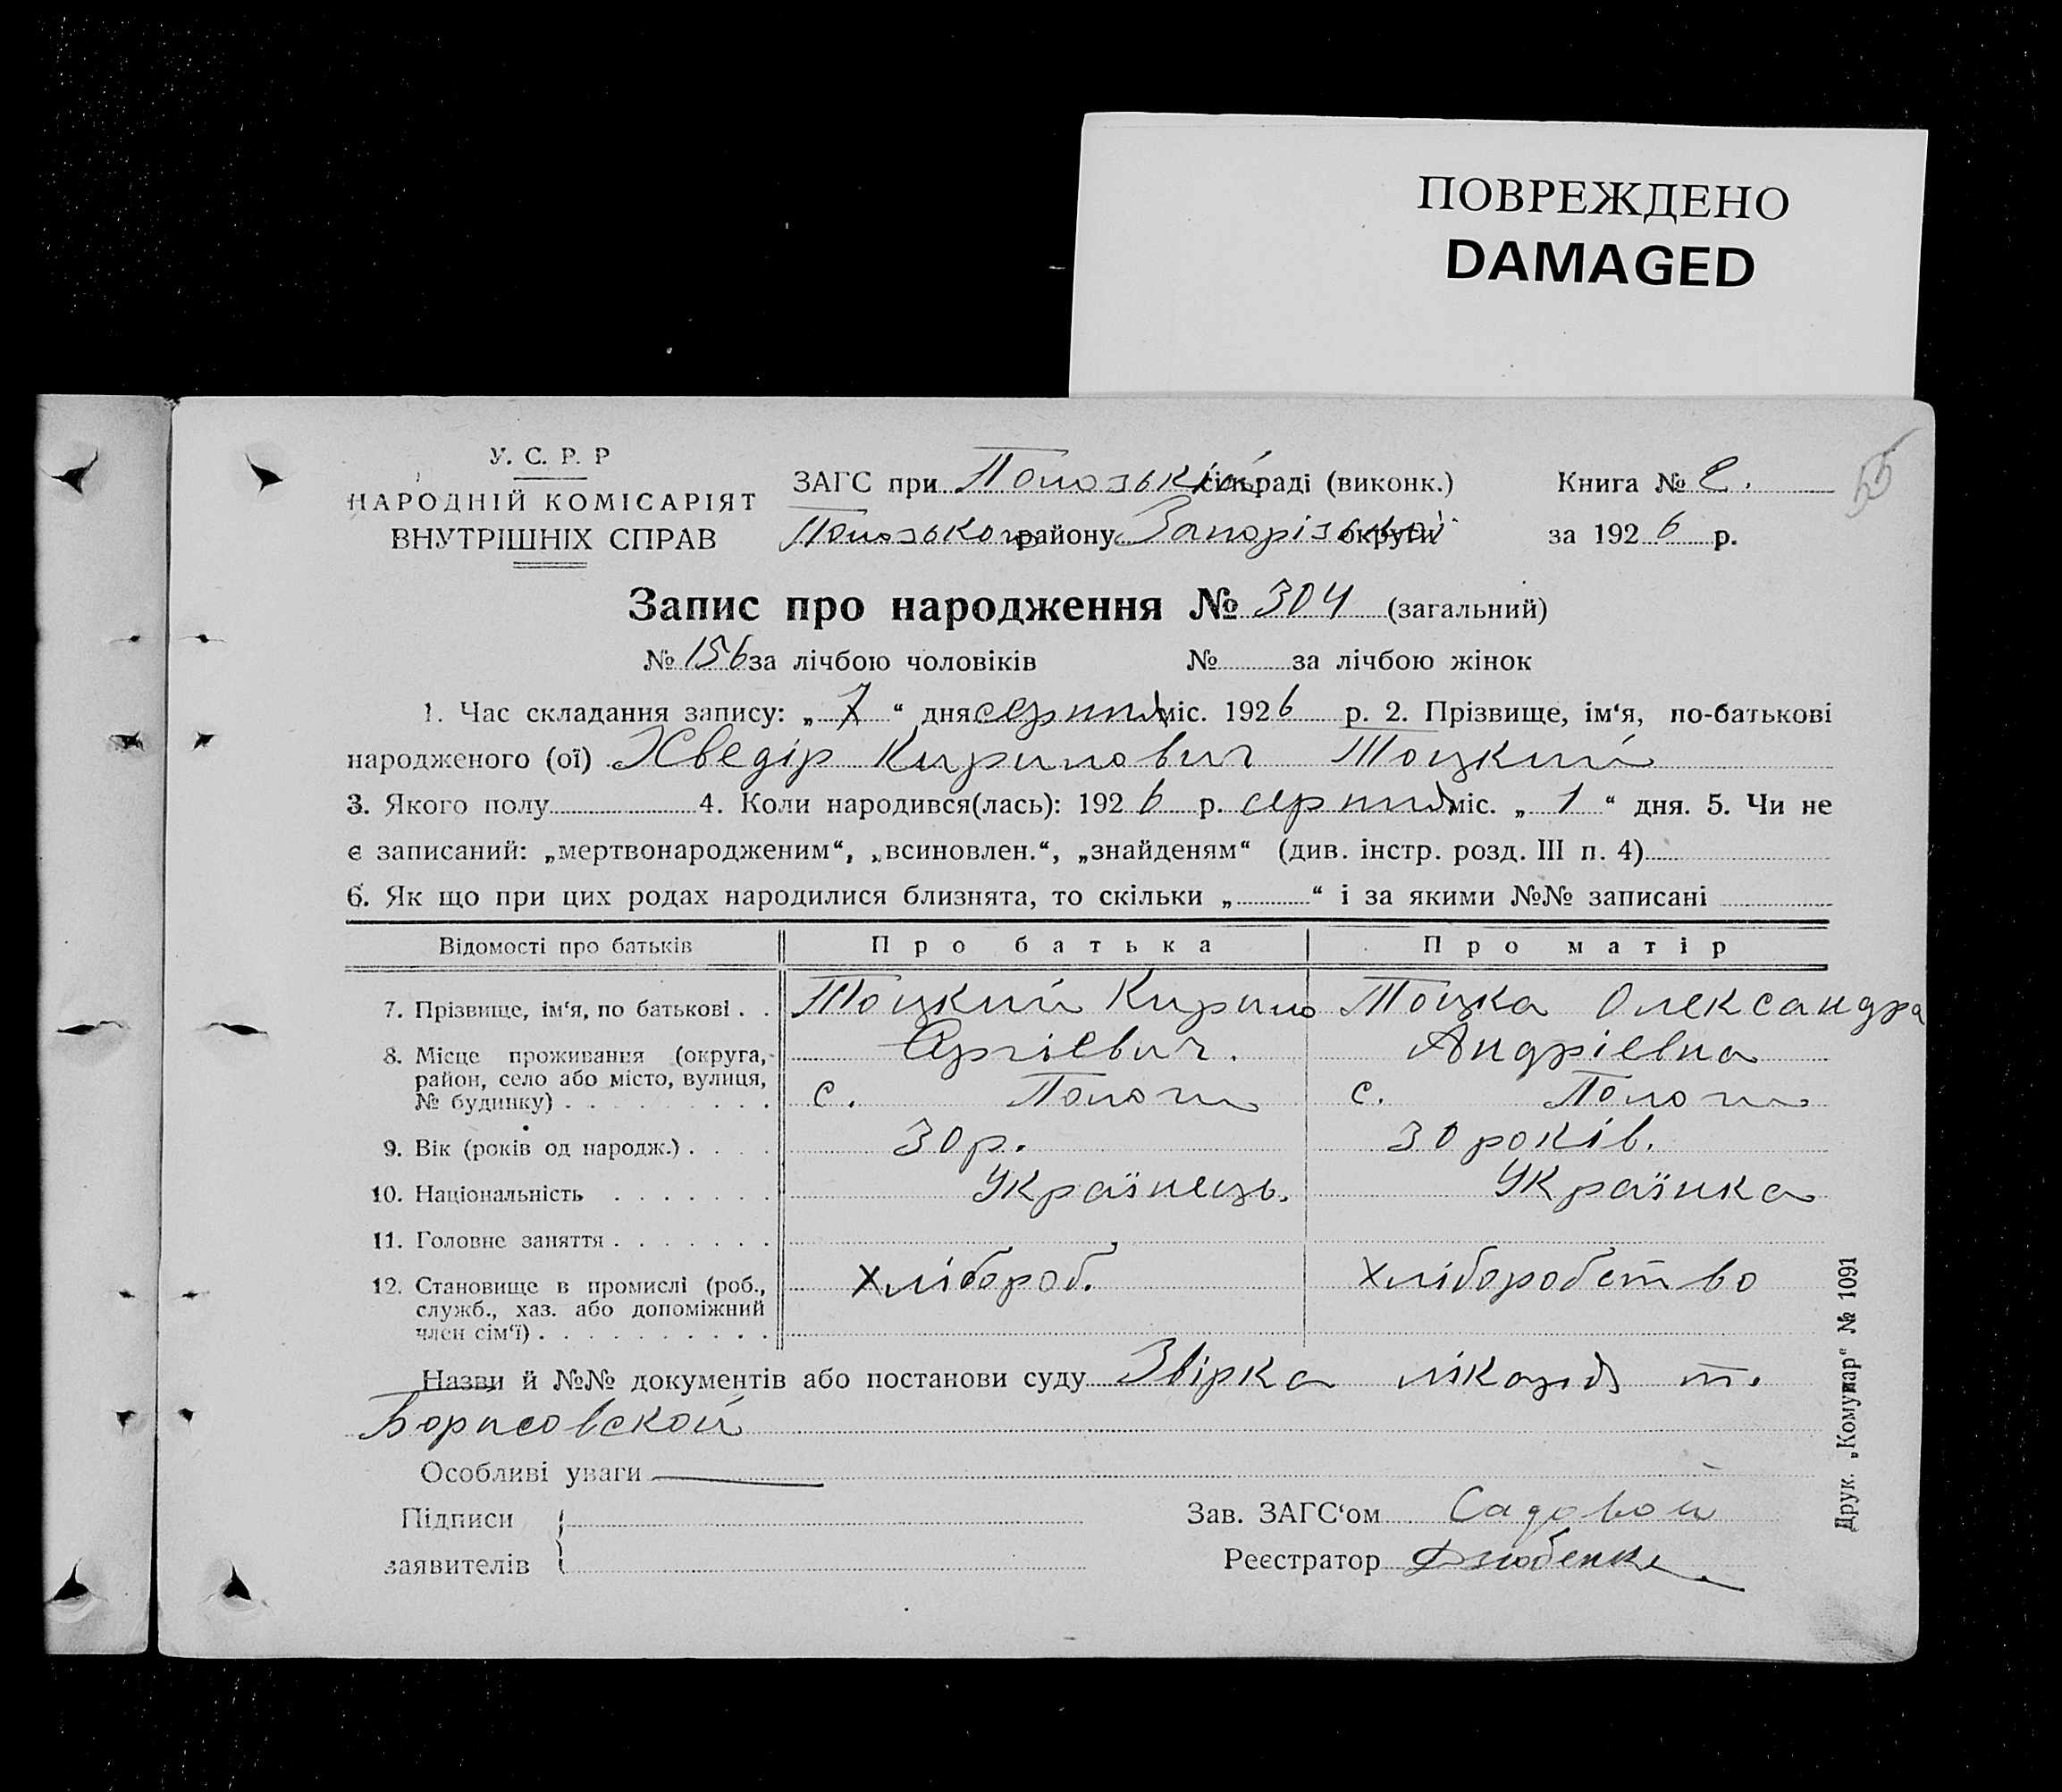 ПОВРЕЖДЕНО
DAMAGED
55
У. С. Р. Р
НАРОДНІЙ КОМІСАРІЯТ
ВНУТРІШНІХ СПРАВ
ЗАГС при Пологзькій сільраді (виконк.) Книга № 2.
району Запорізької округи за 1926 р.
Запис про народження № 304 (загальний)
№ 156 за лічбою чоловіків № за лічбою жінок
1. Час складання запису: „ 7 “ дня серпня міс. 1926 р. 2. Прізвище, ім‘я, по-батькові
народженого (ої) Хведір Кирилович Тоцкий
3. Якого полу 4. Коли народився(лась): 1926 р. серпня міс. „ 1 “ дня. 5. Чи не
є записаний: „мертвонародженим“, „всиновлен.“, „знайденям“ (див. інстр. розд. III п. 4)
6. Як що при цих родах народилися близнята, то скільки „ “ і за якими №№ записані
Відомості про батьків Про батька Про матір
7. Прізвище, ім‘я, по батькові . . Тоцкий Кирило Тоцка Олександра
Сергієвич. Андрієвна
8. Місце проживання (округа, район, село або місто, вулиця, № будинку) . . . с. Пологи с. Пологи
9. Вік (років од народж.) . . . . 30 р. 30 років.
10. Національність . . . . . . . Українець. Українка
11. Головне заняття . . . . . . .
12. Становище в промислі (роб., служб., хаз. або допоміжний член сім‘ї) . . . Хлібороб. Хліборобство
Назви й №№ документів або постанови суду Звірка лікаря т.
Борисовской
Особливі уваги
Підписи
заявителів
Зав. ЗАГС‘ом Садовой
Реєстратор
Друк. „Комунар“ № 1091